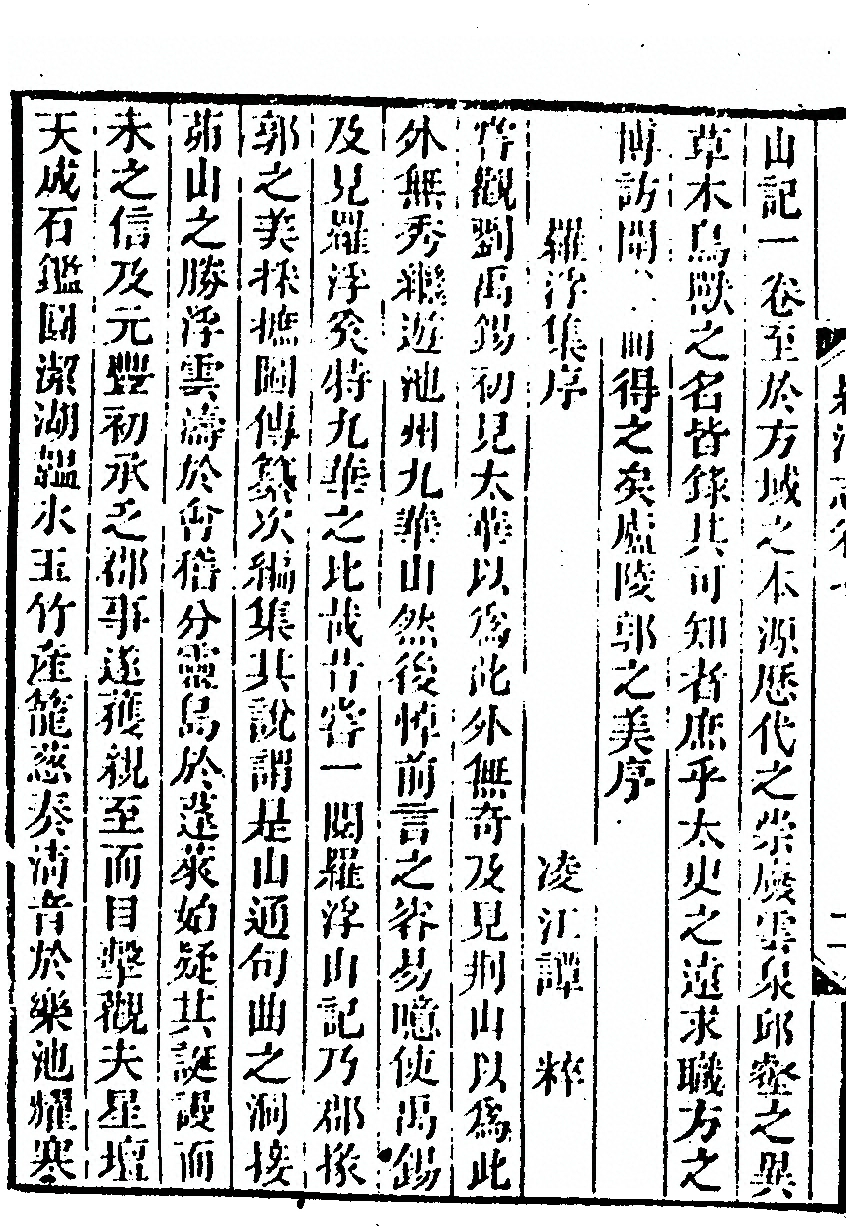 山記一卷至於方域之本源歷代之崇廢雲泉邱壑之異
草木鳥獸之名皆錄其可知者庶乎太史之遠求職方之
博訪開 而得之矣廬陵郭之美序
羅浮集序 凌江譚 粹
嘗觀劉禹錫初見太華以爲此外無奇及見荆山以爲此
外無秀繼遊池州九華山然後悼前言之容易噫使禹錫
及見羅浮奚特九華之比哉昔嘗一閱羅浮山記乃郡掾
郭之美採摭圖傳纂次編集其說謂是山通句曲之洞接
茆山之勝浮雲濤於會稽分靈島於蓬萊始疑其誕謾而
未之信及元豐初承乏郡事遂獲親至而目擊觀夫星壇
天成石鑑圓潔湖韞水玉竹產籠葱奏淸音於樂池耀寒
二